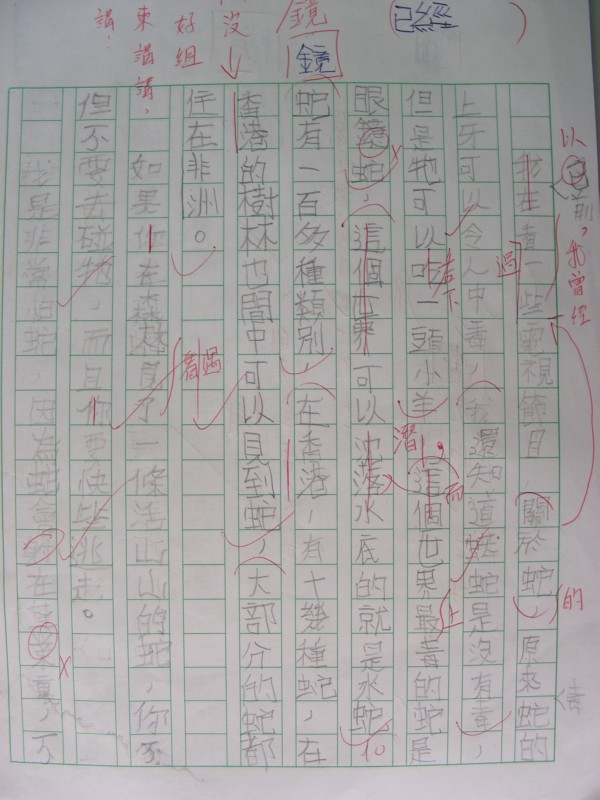 我在看一些電視節目,關於蛇,原來蛇的
上牙可以令人中毒,我還知道蟒蛇是沒有毒,
但是牠可以吃一頭小羊,這個世界最毒的蛇是
眼鏡蛇,這個世界可以沈落水底的就是水蛇
蛇有一百多種類別,在香港,有十幾種蛇,在
香港的樹林也間中可以見到蛇,大部分的蛇都
住在非洲。
如果你在森林見了一條活山山的蛇,你不
但不要去碰牠,而且你要快些逃走。
我是非常怕蛇,因為蛇會 在 裏,不
以前,我曾經
的
過
吞下
潛
而
上
遇
已經
鏡
鏡
沒
好組
東講講,
講.